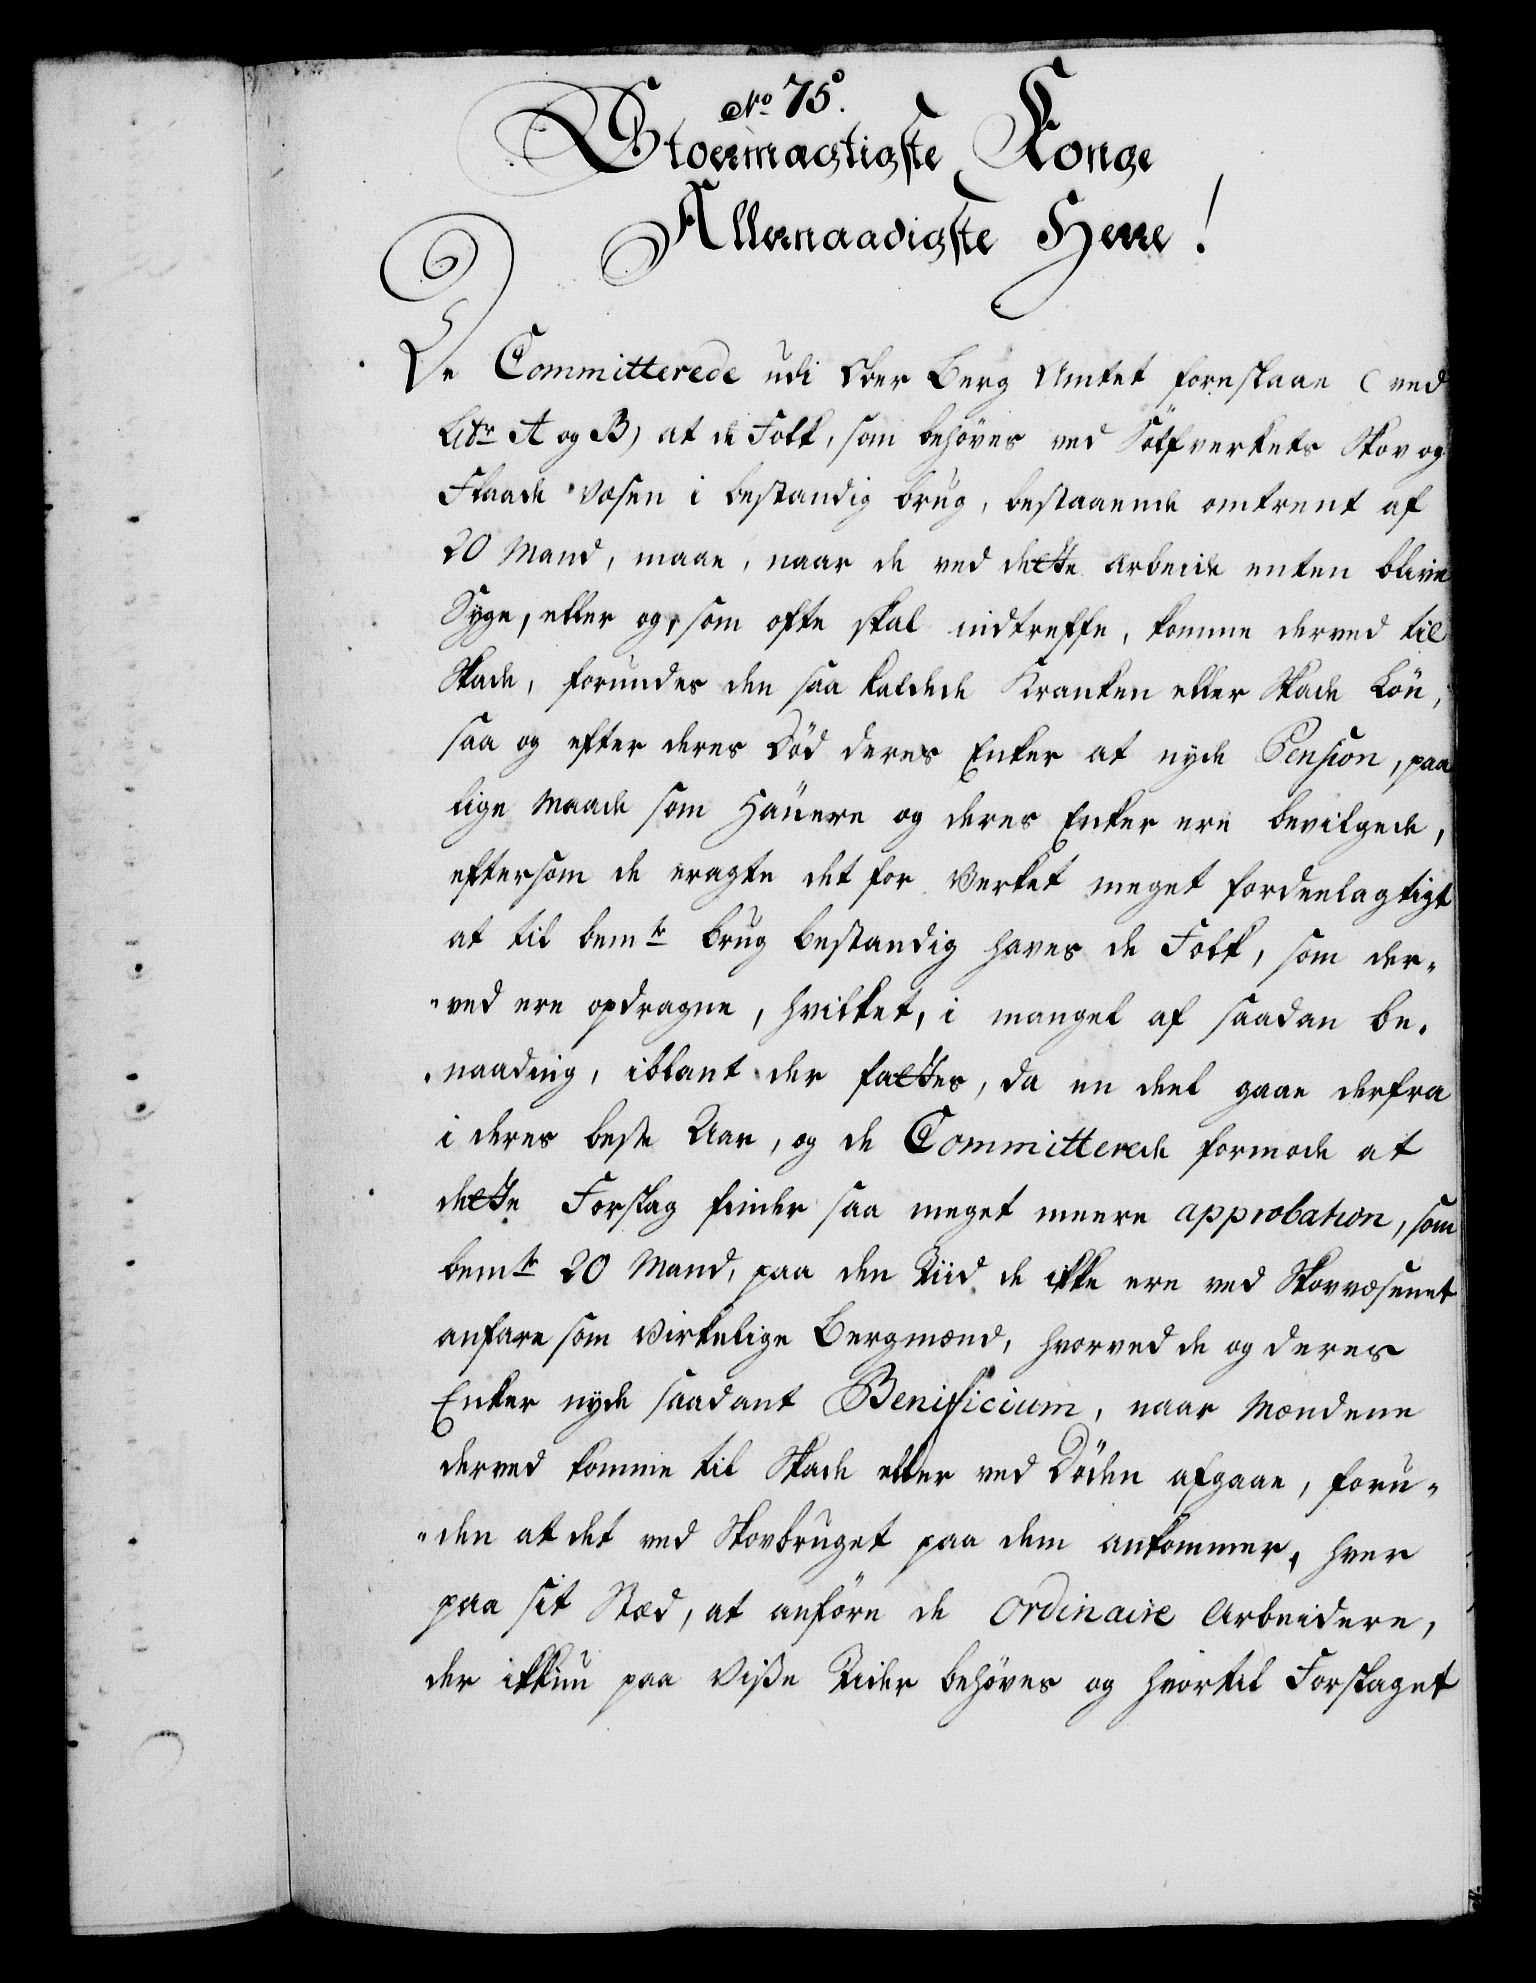 No 75.
Stoermægtigste Konge
Allernaadigste Herre!
De Committerede udi Ober Berg Amtet forestaae (ved
Littr A og B) at de Folk, som behöves ved Sölfverkets Skov og
Flaade Væsen i bestandig brug, bestaaende omtrent af
20 Mand, maae, naar de ved dette Arbeide enten blive
Syge, eller og, som ofte skal indtreffe, komme derved til
Skade, forundes den saa kaldede Kranken eller Skade Lön,
saa og efter deres Död deres Enker at nyde Pension, paa
lige Maade som Häuere og deres Enker ere bevilgede,
eftersom de eragte det for Verket meget fordeelagtigt
at til bemte brug bestandig haves de Folk, som der„
„ved ere opdragne, hvilket, i mangel af saadan be„
„naading, iblant der fattes, da en deel gaae derfra
i deres beste Aar, og de Committerede formode at
dette Forslag finder saa meget meere approbation, som
bemte 20 Mand, paa den Tiid de ikke ere ved Skovvæsenet
anfare som virkelige Bergmænd, hvorved de og deres
Enker nyde saadant Benificium, naar Mændene
derved komme til Skade eller ved Döden afgaae, foru„
„den at det ved Skovbruget paa dem ankommer, hver
paa sit Stæd, at anföre de ordinaire Arbeidere,
der ikkun paa visse Tider behöves og hvortil Forslaget